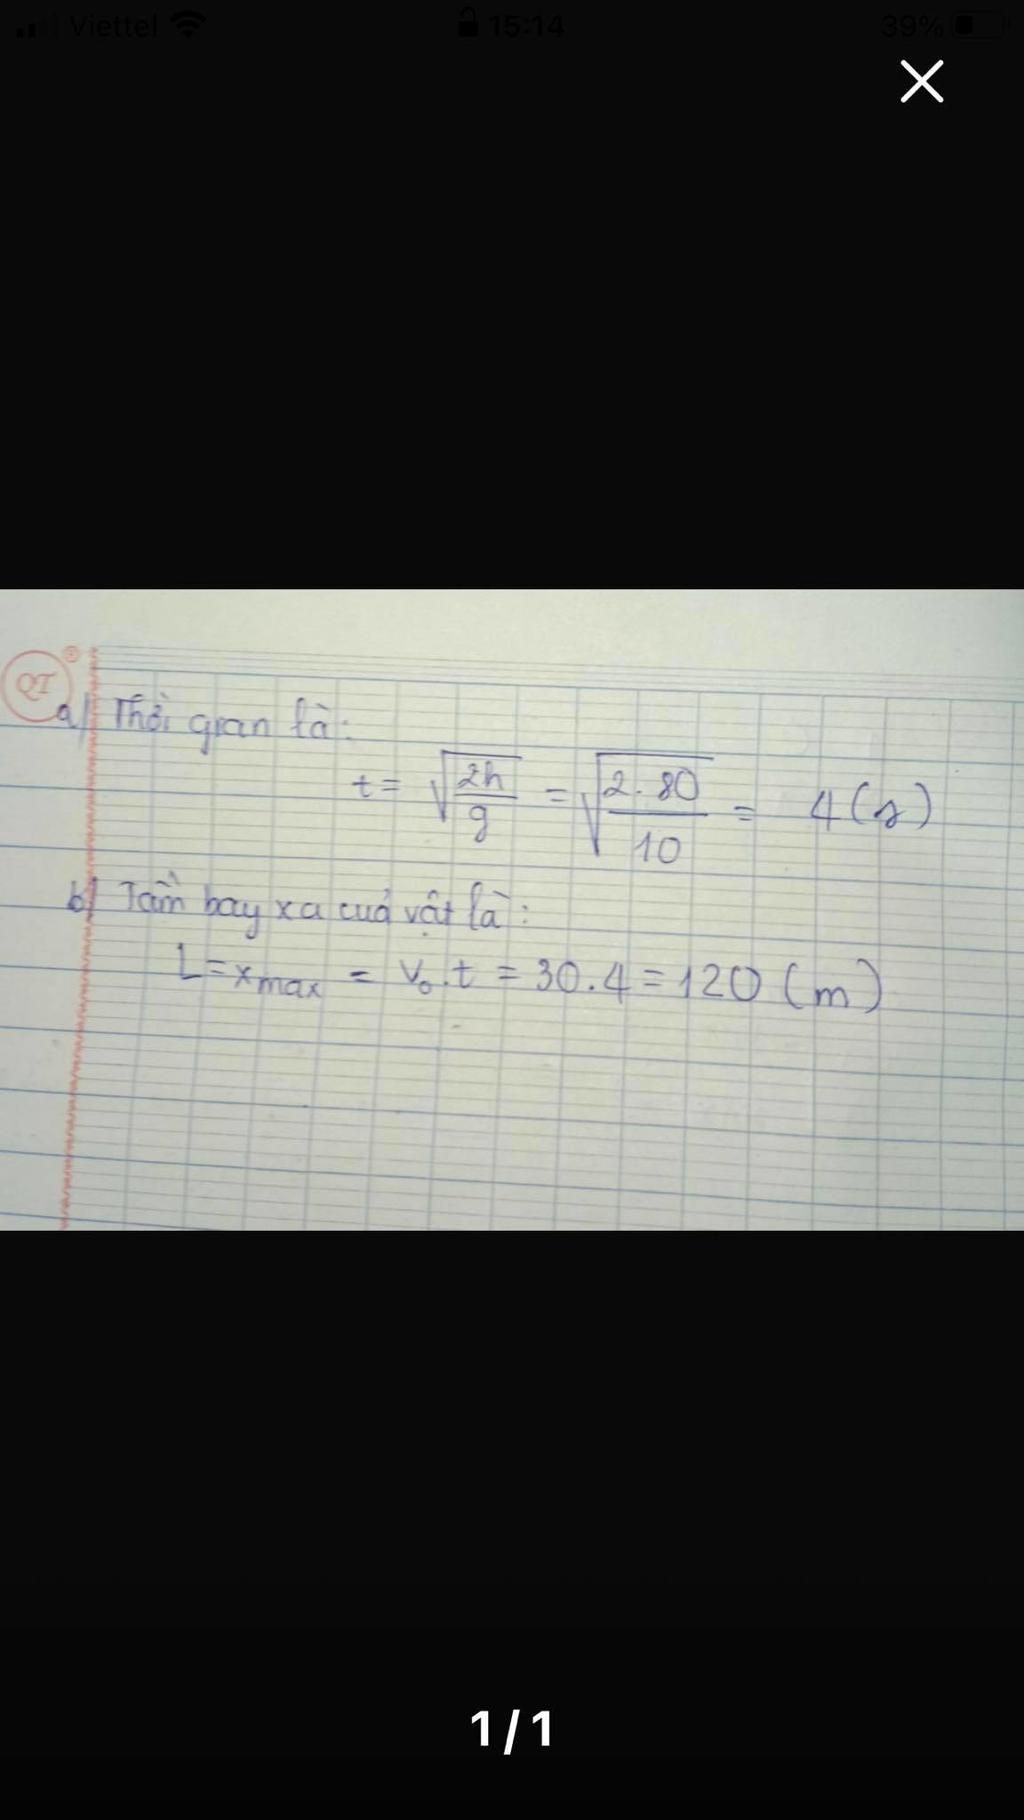 Viettel 15:14 39%
QT
a) Thời gian là:
t = √(2h/g) = √(2.80/10) = 4 (s)
b) Tầm bay xa cuả vật là:
L = xmax = v₀.t = 30.4 = 120 (m)
1/1